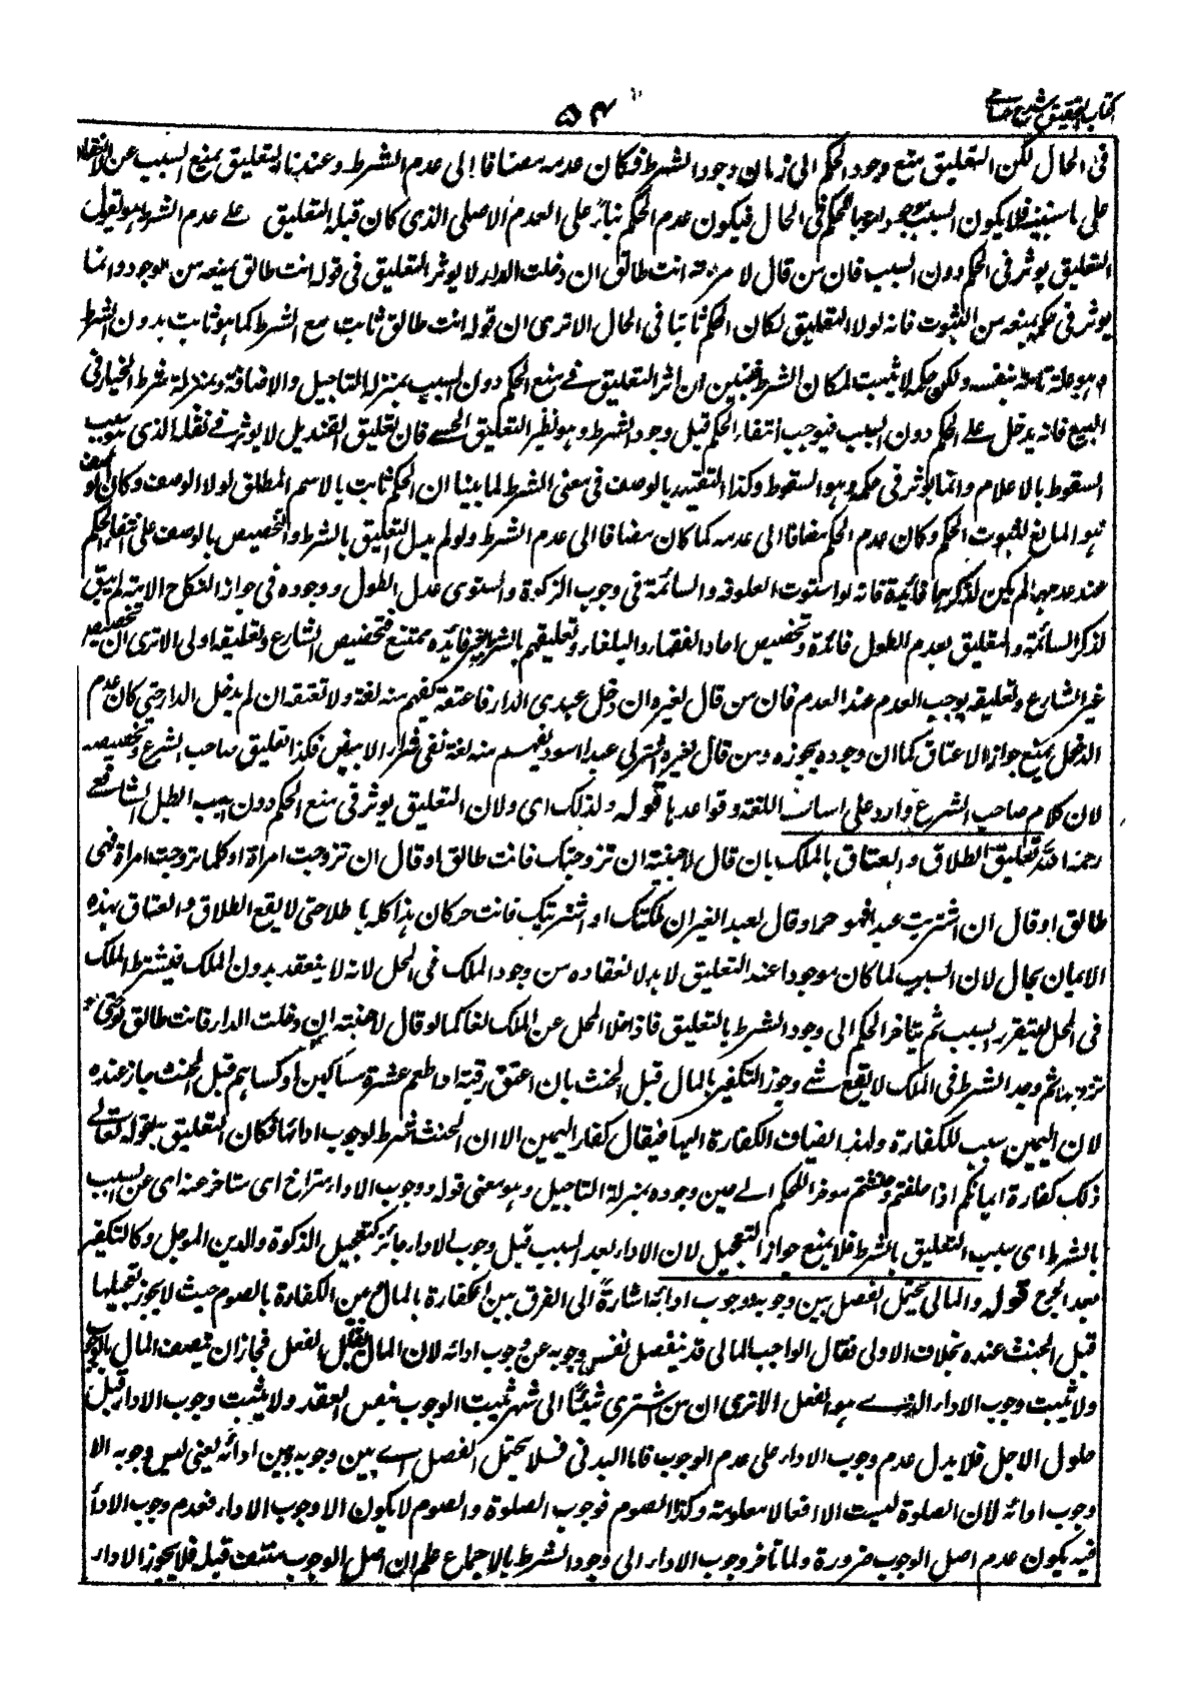 كتاب التحقيق شرح حسامى
٥٤
فى الحال لكن التعليق منع وجود الحكم الى زمان وجود الشرط فكان عدمه مضافا الى عدم الشرط وعندنا التعليق يمنع السبب عن الانعقاد
على ما سنبينه فلا يكون السبب موجودا موجبا للحكم فى الحال فيكون عدم الحكم بناءً على العدم الاصلى الذى كان قبل التعليق على عدم الشرط هو يقول
التعليق يوثر فى الحكم دون السبب فان من قال لامرءته انت طالق ان دخلت الدار لا يوثر التعليق فى قوله انت طالق بمنعه من الوجود وانما
يوثر فى حكمه بمنعه من الثبوت فانه لولا التعليق لكان الحكم ثابتا فى الحال الا ترى ان قوله انت طالق ثابت مع الشرط كما هو ثابت بدون الشرط
وهو علة تامة بنفسه ولكن حكمه لا يثبت لمكان الشرط فتبين ان اثر التعليق فى منع الحكم دون السبب بمنزلة التاجيل والاضافة وبمنزلة شرط الخيار فى
البيع فانه يدخل على الحكم دون السبب فيوجب انتفاء الحكم قبل وجود الشرط وهو نظير التعليق الحسى فان تعليق القنديل لا يوثر فى ثقله الذى هو سبب
السقوط بالاعلام وانما يوثر فى حكمه وهو السقوط وكذا التقييد بالوصف فى معنى الشرط لما بينا ان الحكم ثابت بالاسم المطلق لولا الوصف وكان الوصف
هو المانع لثبوت الحكم وكان عدم الحكم مضافا الى عدمه كما كان مضافا الى عدم الشرط ولو لم يدل التعليق بالشرط والتخصيص بالوصف على انتفاء الحكم
عند عدمهما لم يكن لذكرهما فائدة فانه لو استوت العلوفة والسائمة فى وجوب الزكوة واستوى عدم الطول ووجوده فى جواز النكاح الامة لم يبق
لذكر السائمة والتعليق بعدم الطول فائدة وتخصيص احاد الفصحاء والبلغاء وتعليقهم بالشرط لغير فائدة ممتنع فتخصيص الشارع وتعليقه اولى الا ترى ان تخصيص
غير الشارع وتعليقه يوجب العدم عند العدم فان من قال لغيره ان دخل عبدى الدار فاعتقه يفهم منه لغة ولا تعتقه ان لم يدخل الدار حتى كان عدم
الدخول يمنع جواز الاعتاق كما ان وجوده يجوزه ومن قال لغيره اشتر لى عبدا اسود يفهم منه لغة نفى شراء الابيض فكذا تعليق صاحب الشرع وتخصيصه
لان كلام صاحب الشرع وارد على اساس اللغة وقواعدها قوله ولذلك اى ولان التعليق يوثر فى منع الحكم دون السبب ابطل الشافعى
رحمه الله تعليق الطلاق والعتاق بالملك بان قال لاجنبية ان تزوجتك فانت طالق او قال ان تزوجت امراة او كلما تزوجت امراة فهى
طالق او قال ان اشتريت عبدا فهو حر او قال لعبد الغير ان ملكتك او اشتريتك فانت حر كان هذا كله باطلا حتى لا يقع الطلاق والعتاق بهذه
الايمان بحال لان السبب لما كان موجودا عند التعليق لا بد لانعقاده من وجود الملك فى المحل لانه لا ينعقد بدون الملك فيشترط الملك
فى المحل ليتقرر السبب ثم يتاخر الحكم الى وجود الشرط بالتعليق فاذا خلا المحل عن الملك لغا كما لو قال لاجنبية ان دخلت الدار فانت طالق حتى لو
تزوجها ثم وجد الشرط فى الملك لا يقع شئ وجوز التكفير بالمال قبل الحنث بان اعتق رقبة او اطعم عشرة مساكين او كساهم قبل الحنث جاز عنده
لان اليمين سبب للكفارة ولهذا يضاف الكفارة اليها فيقال كفارة اليمين الا ان الحنث شرط لوجوب ادائها فكان التعليق بقوله تعالى
ذلك كفارة ايمانكم اذا حلفتم وحنثتم موخرا للحكم الى حين وجوده بمنزلة التاجيل وهو معنى قوله ووجوب الاداء متراخ اى متاخر عنه اى عن السبب
بالشرط اى بسبب التعليق بالشرط فلا يمنع جواز التعجيل لان الاداء بعد السبب قبل وجوب الاداء جائز كتعجيل الزكوة والدين الموجل وكالتكفير
بعد الجرح قوله والمالى يحتمل الفصل بين وجوبه ووجوب ادائه اشارةً الى الفرق بين الكفارة بالمال وبين الكفارة بالصوم حيث لا يجوز تعجيلها
قبل الحنث عنده بخلاف الاولى فقال الواجب المالى قد ينفصل نفس وجوبه عن وجوب ادائه لان المال يقبل الفصل فجاز ان يتصف المال بالوجوب
ولا يثبت وجوب الاداء الذى هو الفعل الا ترى ان من اشترى شيئًا الى شهر يثبت الوجوب بنفس العقد ولا يثبت وجوب الاداء قبل
حلول الاجل فلا يدل عدم وجوب الاداء على عدم الوجوب فاما البدنى فلا يحتمل الفصل اى بين وجوبه وبين ادائه يعنى ليس وجوبه الا
وجوب ادائه لان الصلوة ليست الا افعالا معلومة وكذا الصوم فوجوب الصلوة والصوم لا يكون الا وجوب الاداء فعدم وجوب الاداء
فيه يكون عدم اصل الوجوب ضرورة ولما تاخر وجوب الاداء الى وجود الشرط بالاجماع علم ان اصل الوجوب منتف قبله فلا يجوز الاداء